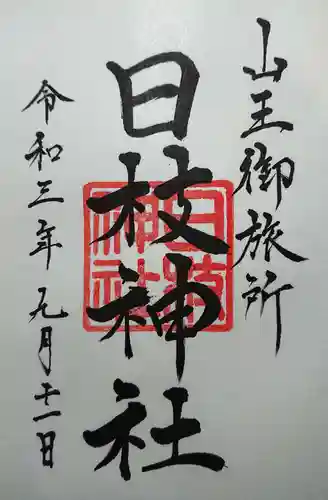 山王御旅所
日枝神社
令和三年九月十一日
日枝神社